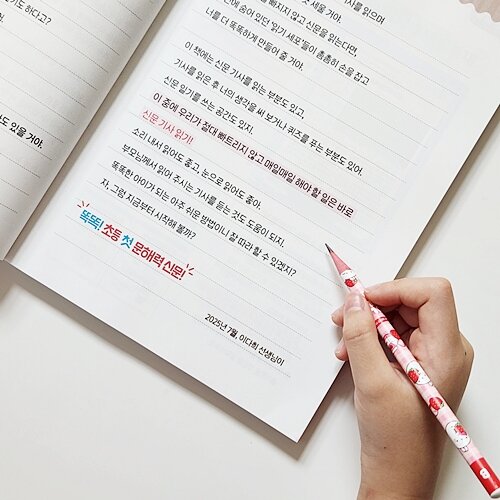 기도 하다고?
도 있을 거야.
빠지지 않고 신문을 읽는다면,
간에 숨어 있던 '읽기 세포'들이 촘촘히 손을 잡고
너를 더 똑똑하게 만들어 줄 거야.
이 책에는 신문 기사를 읽는 부분도 있고,
기사를 읽은 후 너의 생각을 써 보거나 퀴즈를 푸는 부분도 있어.
신문 일기를 쓰는 공간도 있지.
이 중에 우리가 절대 빠트리지 않고 매일매일 해야 할 일은 바로
신문 기사 읽기!
소리 내서 읽어도 좋고, 눈으로 읽어도 좋아.
부모님께서 읽어 주시는 기사를 듣는 것도 도움이 되지.
똑똑한 아이가 되는 아주 쉬운 방법이니 잘 따라 할 수 있겠지?
자, 그럼 지금부터 시작해 볼까?
똑똑! 초등 첫 문해력 신문!
2025년 7월, 이다희 선생님이